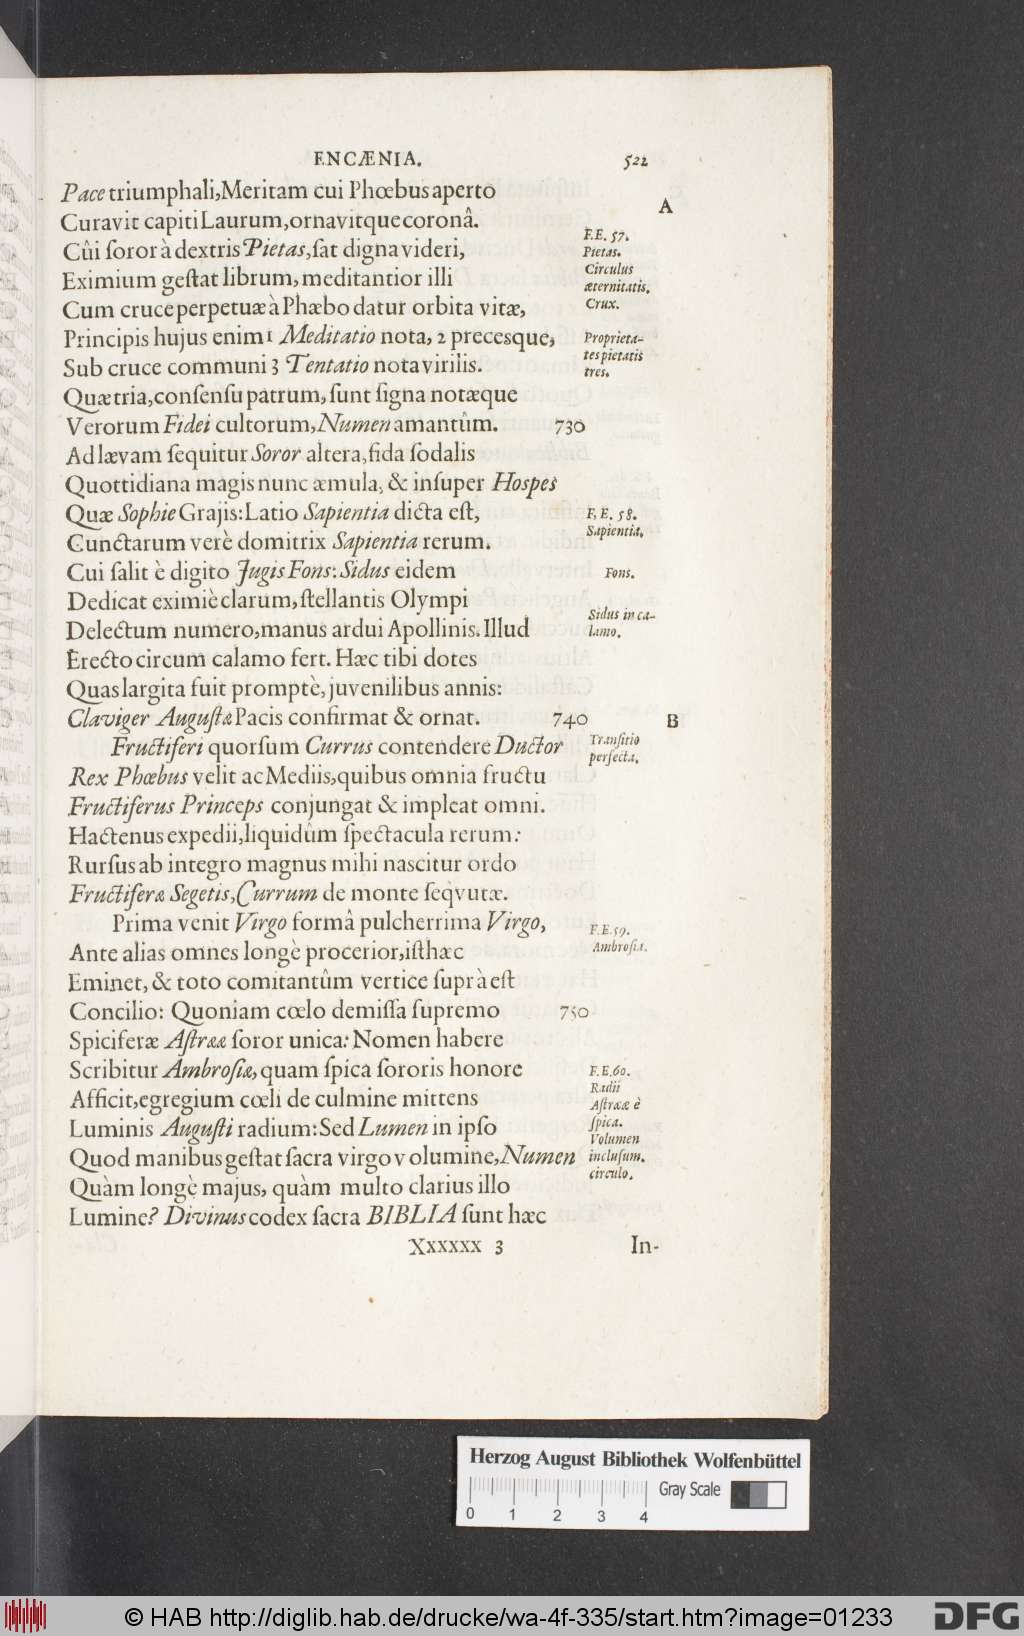 ENCÆNIA. 521
Pace triumphali, Meritam cui Phœbus aperto
A
Curavit capiti Laurum, ornavitque coronâ.
Cûi ſoror à dextris Pietas, ſat digna videri,
F.E. 57.
Pietas.
Eximium geſtat librum, meditantior illi
Circulus
æternitatis.
Cum cruce perpetuæ à Phæbo datur orbita vitæ,
Crux.
Principis hujus enim 1 Meditatio nota, 2 precesque,
Proprieta-
tes pietatis
Sub cruce communi 3 Tentatio nota virilis.
tres.
Quæ tria, conſenſu patrum, ſunt ſigna notæque
Verorum Fidei cultorum, Numen amantûm. 730
Ad lævam ſequitur Soror altera, fida ſodalis
Quottidiana magis nunc æmula, & inſuper Hospes
Quæ Sophie Grajis: Latio Sapientia dicta eſt,
F. E. 58.
Sapientia.
Cunctarum verè domitrix Sapientia rerum.
Cui ſalit è digito Jugis Fons: Sidus eidem
Fons.
Dedicat eximiè clarum, ſtellantis Olympi
Delectum numero, manus ardui Apollinis. Illud
Sidus in ca-
lamo.
Erecto circum calamo fert. Hæc tibi dotes
Quas largita fuit promptè, juvenilibus annis:
Claviger Auguſtæ Pacis confirmat & ornat. 740
B
Fructiferi quorſum Currus contendere Ductor
Tranſitio
perfecta.
Rex Phœbus velit ac Mediis, quibus omnia fructu
Fructiferus Princeps conjungat & impleat omni.
Hactenus expedii, liquidûm ſpectacula rerum:
Rurſus ab integro magnus mihi nascitur ordo
Fructiferæ Segetis, Currum de monte ſeqvutæ.
Prima venit Virgo formâ pulcherrima Virgo,
F.E. 59.
Ambroſia.
Ante alias omnes longè procerior, iſthæc
Eminet, & toto comitantûm vertice ſuprà eſt
Concilio: Quoniam cœlo demiſſa ſupremo 750
Spiciferæ Aſtrææ ſoror unica: Nomen habere
Scribitur Ambroſiæ, quam ſpica ſororis honore
F.E. 60.
Radii
Afficit, egregium cœli de culmine mittens
Aſtrææ è
ſpica.
Luminis Auguſti radium: Sed Lumen in ipſo
Volumen
Quod manibus geſtat ſacra virgo volumine, Numen
incluſum.
circulo.
Quàm longè majus, quàm multo clarius illo
Lumine? Divinus codex ſacra BIBLIA ſunt hæc
Xxxxxx 3 In-
Herzog August Bibliothek Wolfenbüttel
Gray Scale
0 1 2 3 4
© HAB http://diglib.hab.de/drucke/wa-4f-335/start.htm?image=01233
DFG